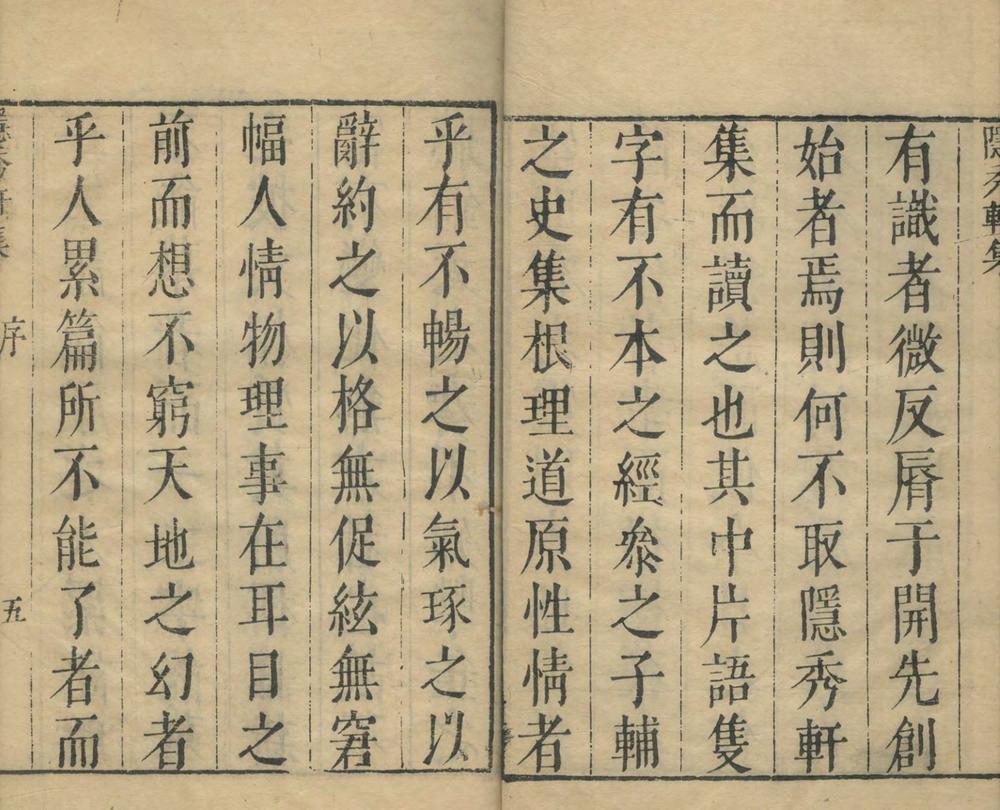 隱秀軒集
有識者微反脣于開先創
始者焉則何不取隱秀軒
集而讀之也其中片語隻
字有不本之經叅之子輔
之史集根理道原性情者
乎有不暢之以氣琢之以
辭約之以格無促絃無窘
幅人情物理事在耳目之
前而想不窮天地之幻者
乎人累篇所不能了者而
隱秀軒集 序 五